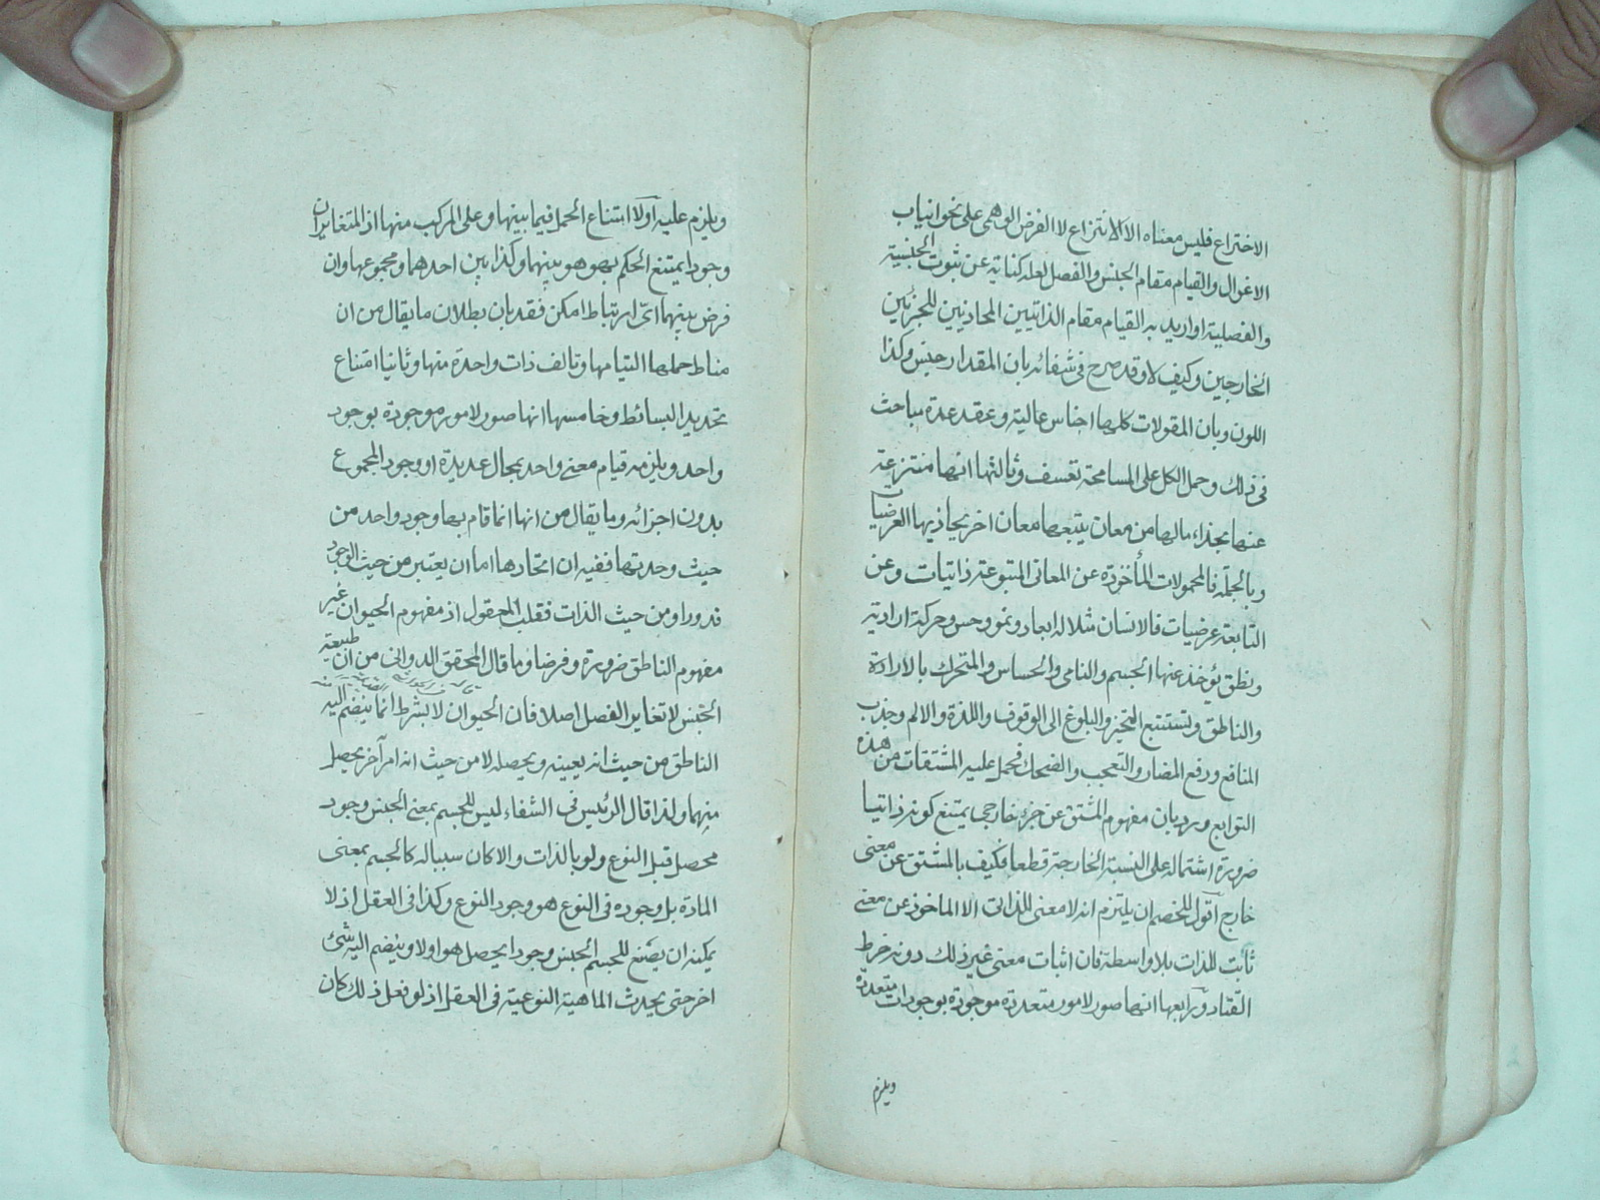 الاختراع فليس معناه الا الانتزاع لا الفرض الوهمى على نحو انياب
الاغوال والقيام مقام الجنس والفصل لعله كناية عن ثبوت الجنسية
والفصلية او اريد به القيام مقام الذاتيين المحاذيين للجزئين
الخارجين وكيف لا وقد صرح فى شفائه بان المقدار جنس وكذا
اللون وبان المقولات كلها اجناس عالية وعقد عدة مباحث
فى ذلك وحمل الكل على المسامحة تعسف وثالثها انها منتزعة
عنها بحذاء مالها من معان يتبعها معان اخر يحاذيها العرضيات
وبالجملة فالمحمولات المأخوذة عن المعانى المتبوعة ذاتيات وعن
التابعة عرضيات فالانسان مثلا له ابعاد ونمو وحس وحركة ارادية
ونطق يؤخذ عنها الجسم والنامى والحساس والمتحرك بالارادة
والناطق وتستتبع التحيز والبلوغ الى الوقوف واللذة والالم وجذب
المنافع ودفع المضار والتعجب والضحك فحمل عليه المشتقات من هذه
التوابع ورد بان مفهوم المشتق عن جزء خارجى يمتنع كونه ذاتيا
ضرورة اشتماله على النسبة الخارجة قطعا فكيف بالمشتق عن معنى
خارج اقول للخصم ان يلتزم انه لا معنى للذاتى الا الماخوذ عن معنى
ثابت للذات بلا واسطة فان اثبات معنى غير ذلك دونه خرط
القتاد ورابعها انها صور لامور متعددة موجودة بوجودات متعددة
ويلزم
ويلزم عليه اولا امتناع الحمل فيما بينها وعلى المركب منها اذ المتغايران
وجودا يمتنع الحكم بهو هو بينهما وكذا بين احدهما ومجموعهما وان
فرض بينهما اىّ ارتباط امكن فقد بان بطلان ما يقال من ان
مناط حملها التيامها وتالف ذات واحدة منها وثانيا امتناع
تحديد البسائط وخامسها انها صور لامور موجودة بوجود
واحد ويلزمه قيام معنى واحد بمحال عديدة او وجود المجموع
بدون اجزائه وما يقال من انها انما قام بها وجود واحد من
حيث وحدتها ففيه ان اتحادها اما ان يعتبر من حيث الوجود
فدور او من حيث الذات فقلب المعقول اذ مفهوم الحيوان غير
مفهوم الناطق ضرورة وفرضا وما قال المحقق الدوانى من ان طبيعة
الجنس لا تغاير الفصل اصلا فان الحيوان لا بشرط انما ينضم اليه
الناطق من حيث انه يعينه ويحصله لا من حيث انه امر آخر يحصل
منهما ولذا قال الرئيس فى الشفاء ليس للجسم بمعنى الجنس وجود
محصل قبل النوع ولو بالذات والا كان سببا له كالجسم بمعنى
المادة بل وجوده فى النوع هو وجود النوع وكذا فى العقل اذ لا
يمكنه ان يضع للجسم الجنس وجودا يحصل هو اولا وينضم اليه شئ
اخر حتى يحدث الماهية النوعية فى العقل اذ لو فعل ذلك كان